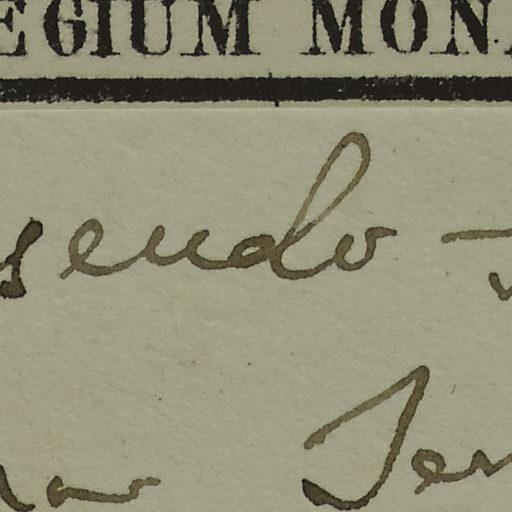 EGIUM MONA
seudo-
Ter